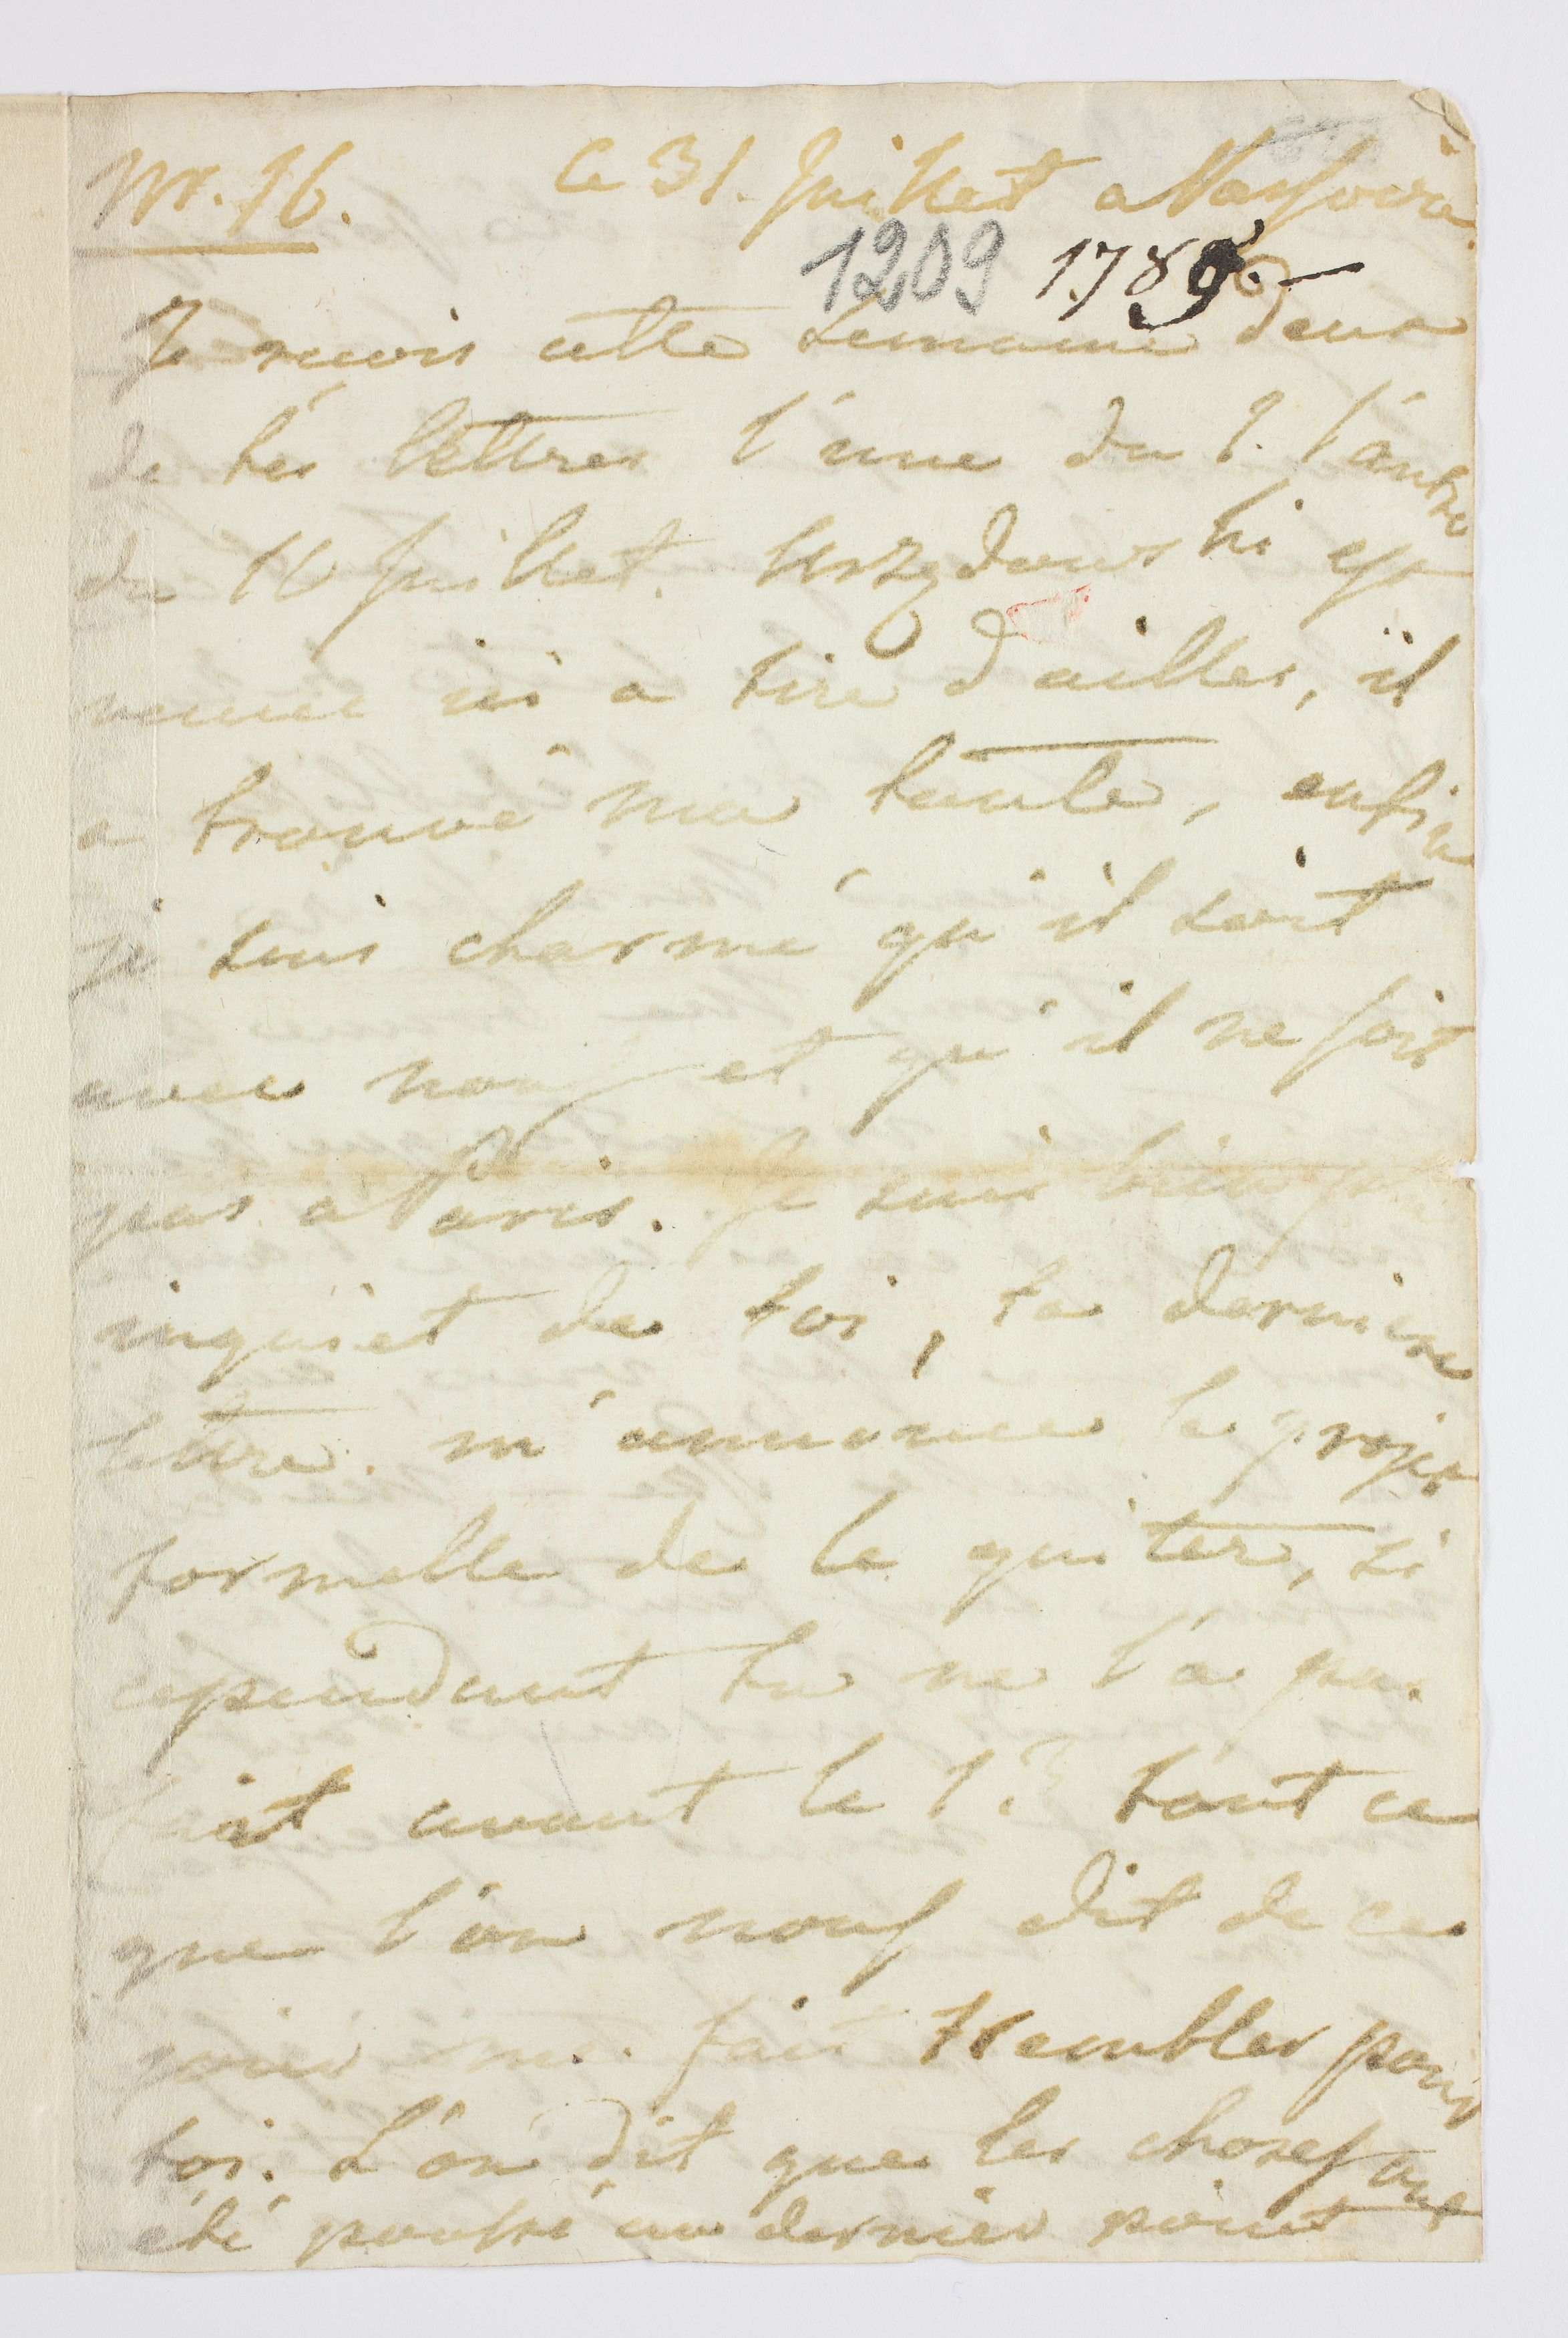 Nr. 16. Ce 31. Juillet a Varsovie.
1209 1789.—
Je recois cette semaine deux
de tes lettres l'une du 9. l'autre
du 16 Juillet. est
venue ici a tire d'ailles, il
a trouvé ma tante, enfin
je suis charmé qu'il soit
avec nous et qu'il ne soit
pas a Paris. Je suis bien
inquiet de toi, ta derniere
lettre m'annonce le projet
formelle de le quiter, si
cependant tu ne l'a pas
fait avant le 13 tout ce
que l'on nous dit de ce
jour me fait trembler pour
toi. L'on dit que les choses ont
été poussé au dernier point